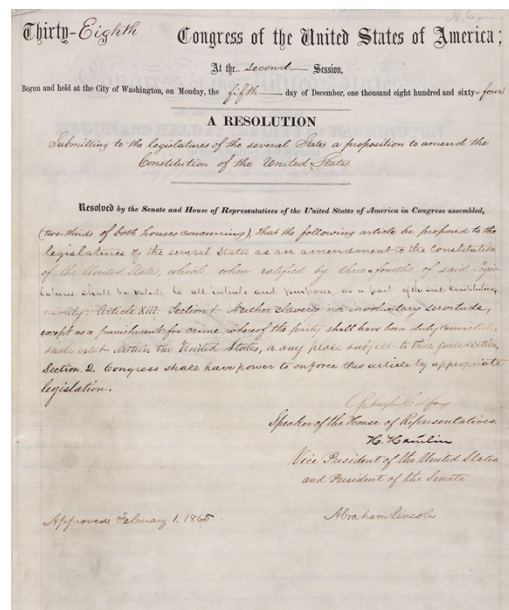 Thirty-Eighth Congress of the United States of America;
At the second Session,
Begun and held at the City of Washington, on Monday, the fifth day of December, one thousand eight hundred and sixty-four
A RESOLUTION
Submitting to the legislatures of the several States a proposition to amend the
Constitution of the United States
Resolved by the Senate and House of Representatives of the United States of America in Congress assembled,
(two-thirds of both houses concurring), That the following article be proposed to the
legislatures of the several States as an amendment to the Constitution
of the United States, which, when ratified by three-fourths of said Legis-
latures shall be valid, to all intents and purposes, as a part of the said Constitution,
namely: Article XIII. Section 1. Neither slavery nor involuntary servitude,
except as a punishment for crime whereof the party shall have been duly convicted,
shall exist within the United States, or any place subject to their jurisdiction.
Section 2. Congress shall have power to enforce this article by appropriate
legislation.
Schuyler Colfax
Speaker of the House of Representatives.
H. Hamlin
Vice President of the United States
and President of the Senate
Approved, February 1. 1865.
Abraham Lincoln